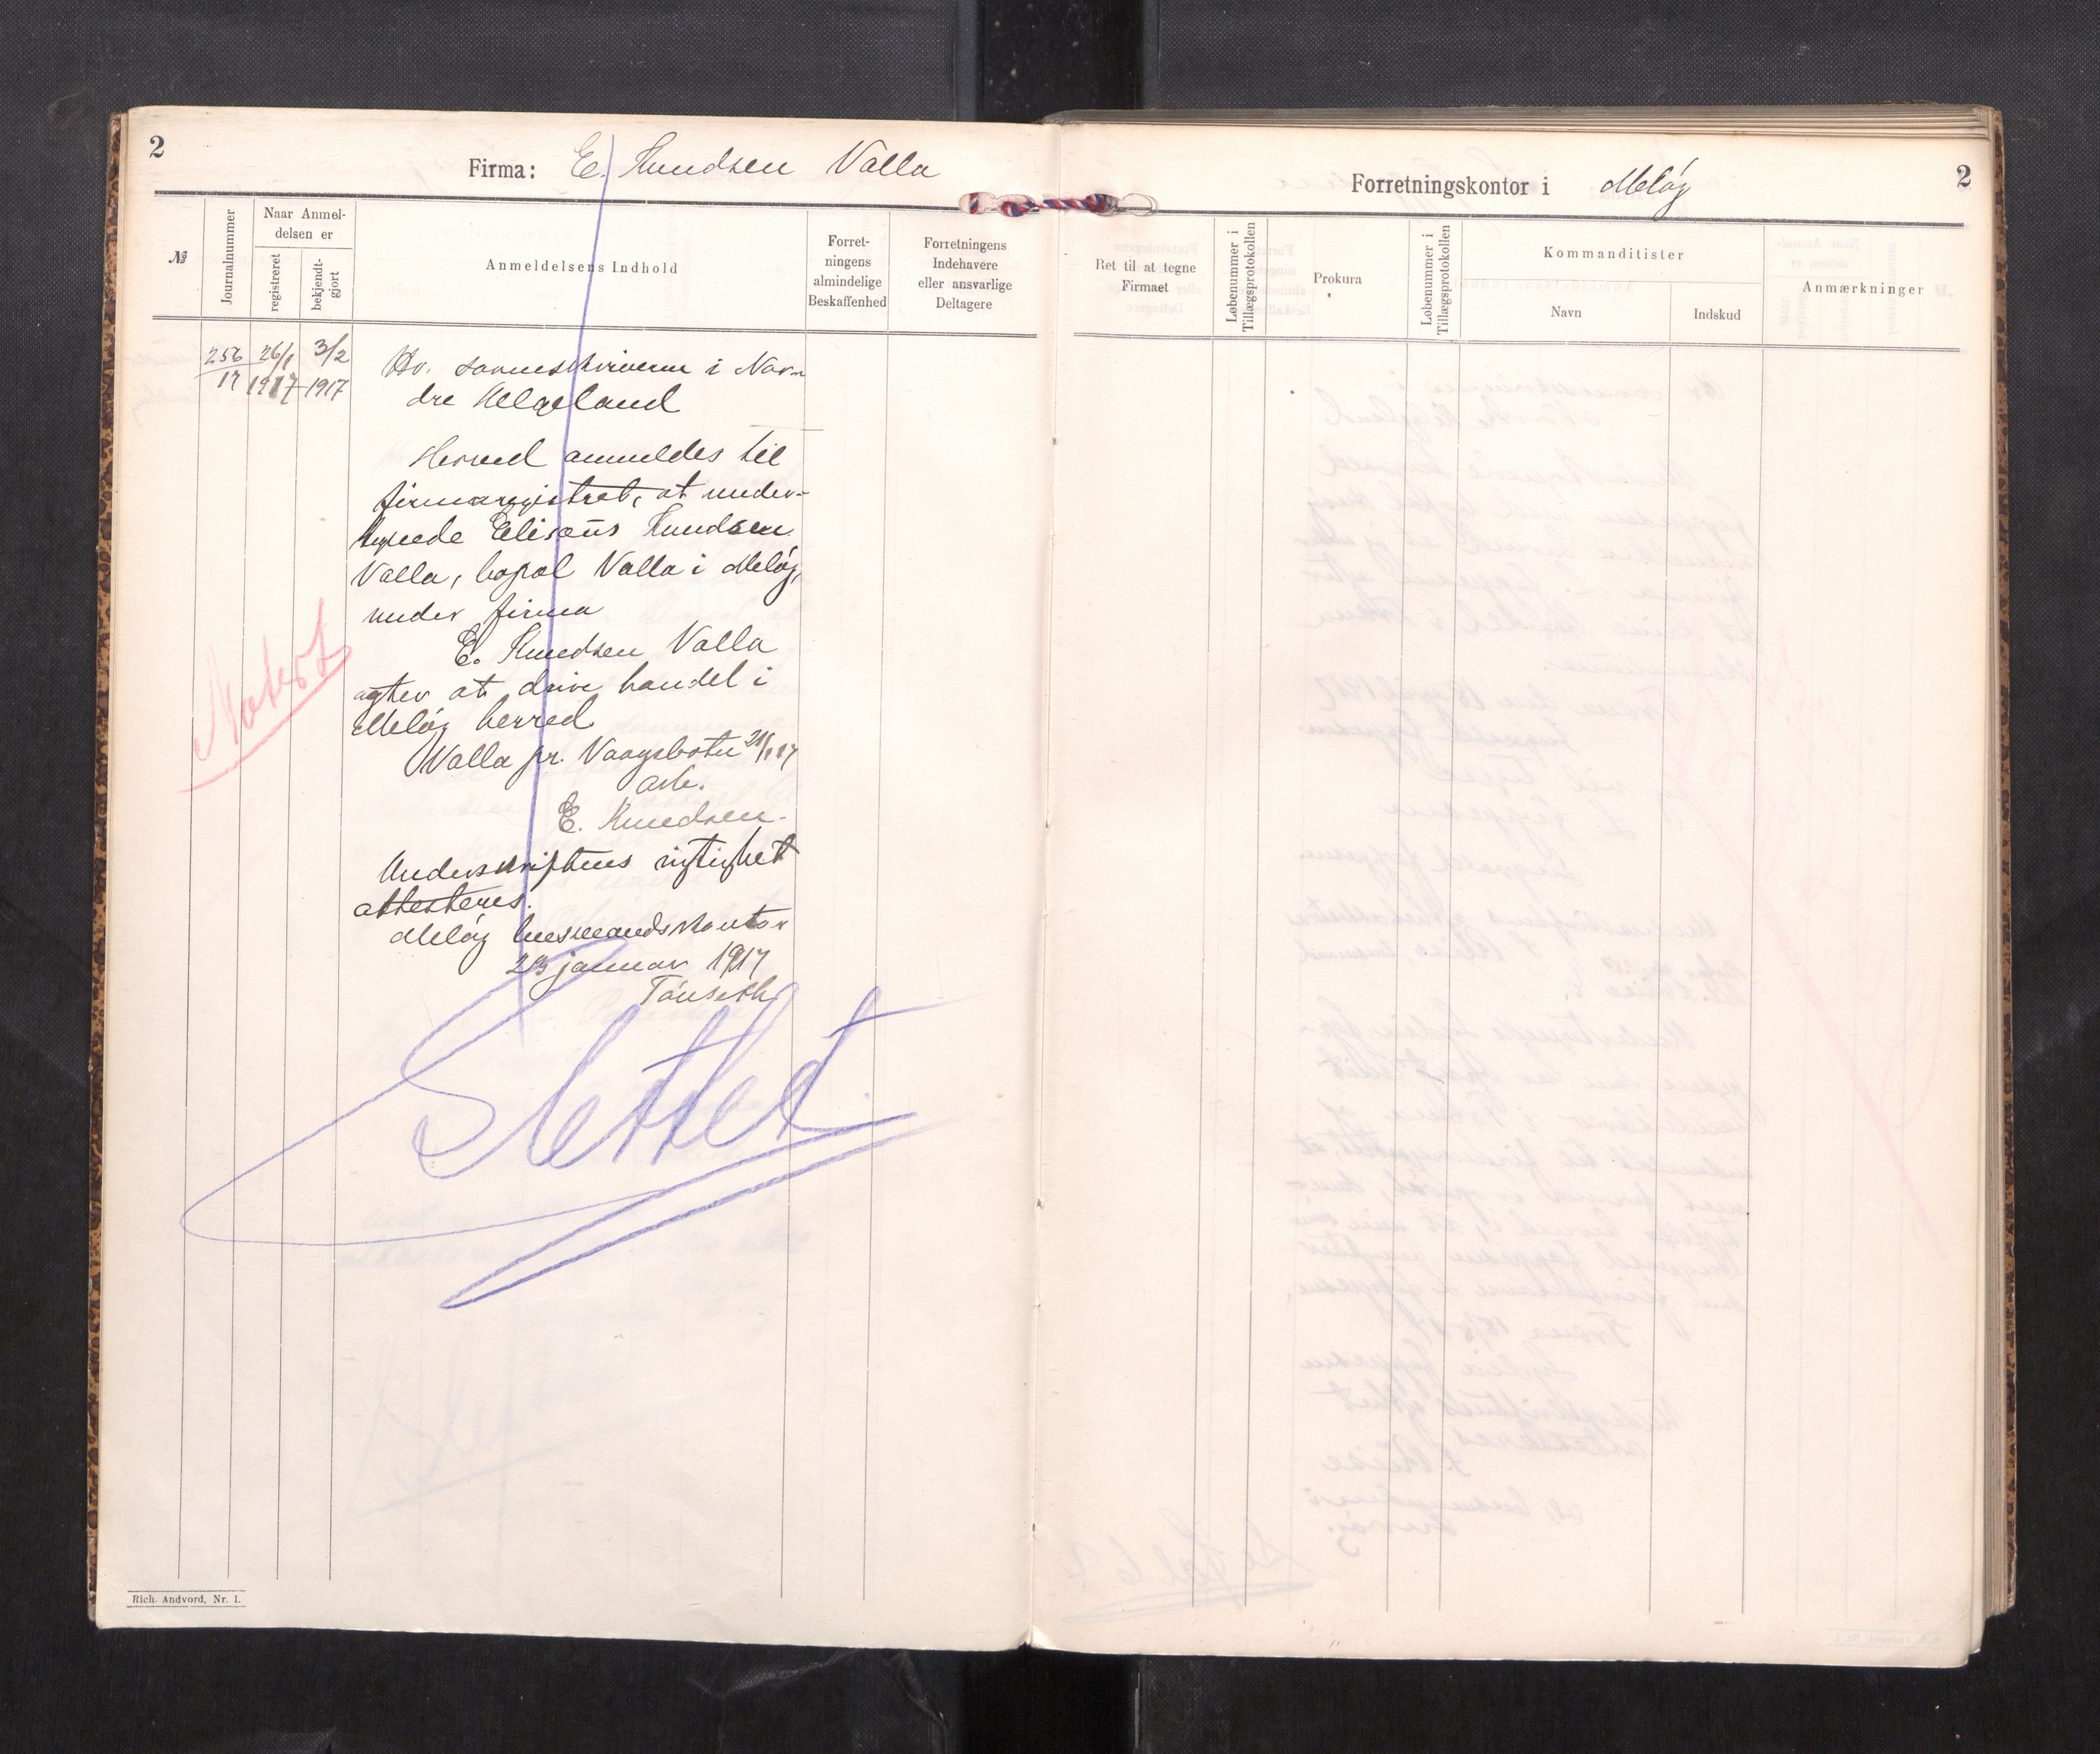 2
Firma: E. Knudsen Valla
№
Journalnummer
Naar Anmel-
delsen er
registreret
bekjendt-
gjort
Anmeldelsens Indhold
Forret-
ningens
almindelige
Beskaffenhed
Forretningens
Indehavere
eller ansvarlige
Deltagere
256
17
26/1
1917
3/2
1917
Hr. sorenskriveren i Nor-
dre Helgeland
Herved anmeldes til
firmaregistret, at under-
tegnede Elisæus Knudsen
Valla, bopæl Valla i Meløy,
under firma
E. Knudsen Valla
agter at drive handel i
Meløy herred
Valla pr. Vaagsbotn 21/1 17
Notert
E. Knudsen.
Underskriftens rigtighet
attesteres.
Meløy lensmandskontor
januar 1917
Tønseth
Slettet
Rich. Andvord, Nr. 1.
Forretningskontor i Meløy
2
Ret til at tegne
Firmaet
Løbenummer i
Tillægsprotokollen
Prokura
Løbenummer i
Tillægsprotokollen
Kommanditister
Navn
Indskud
Anmærkninger